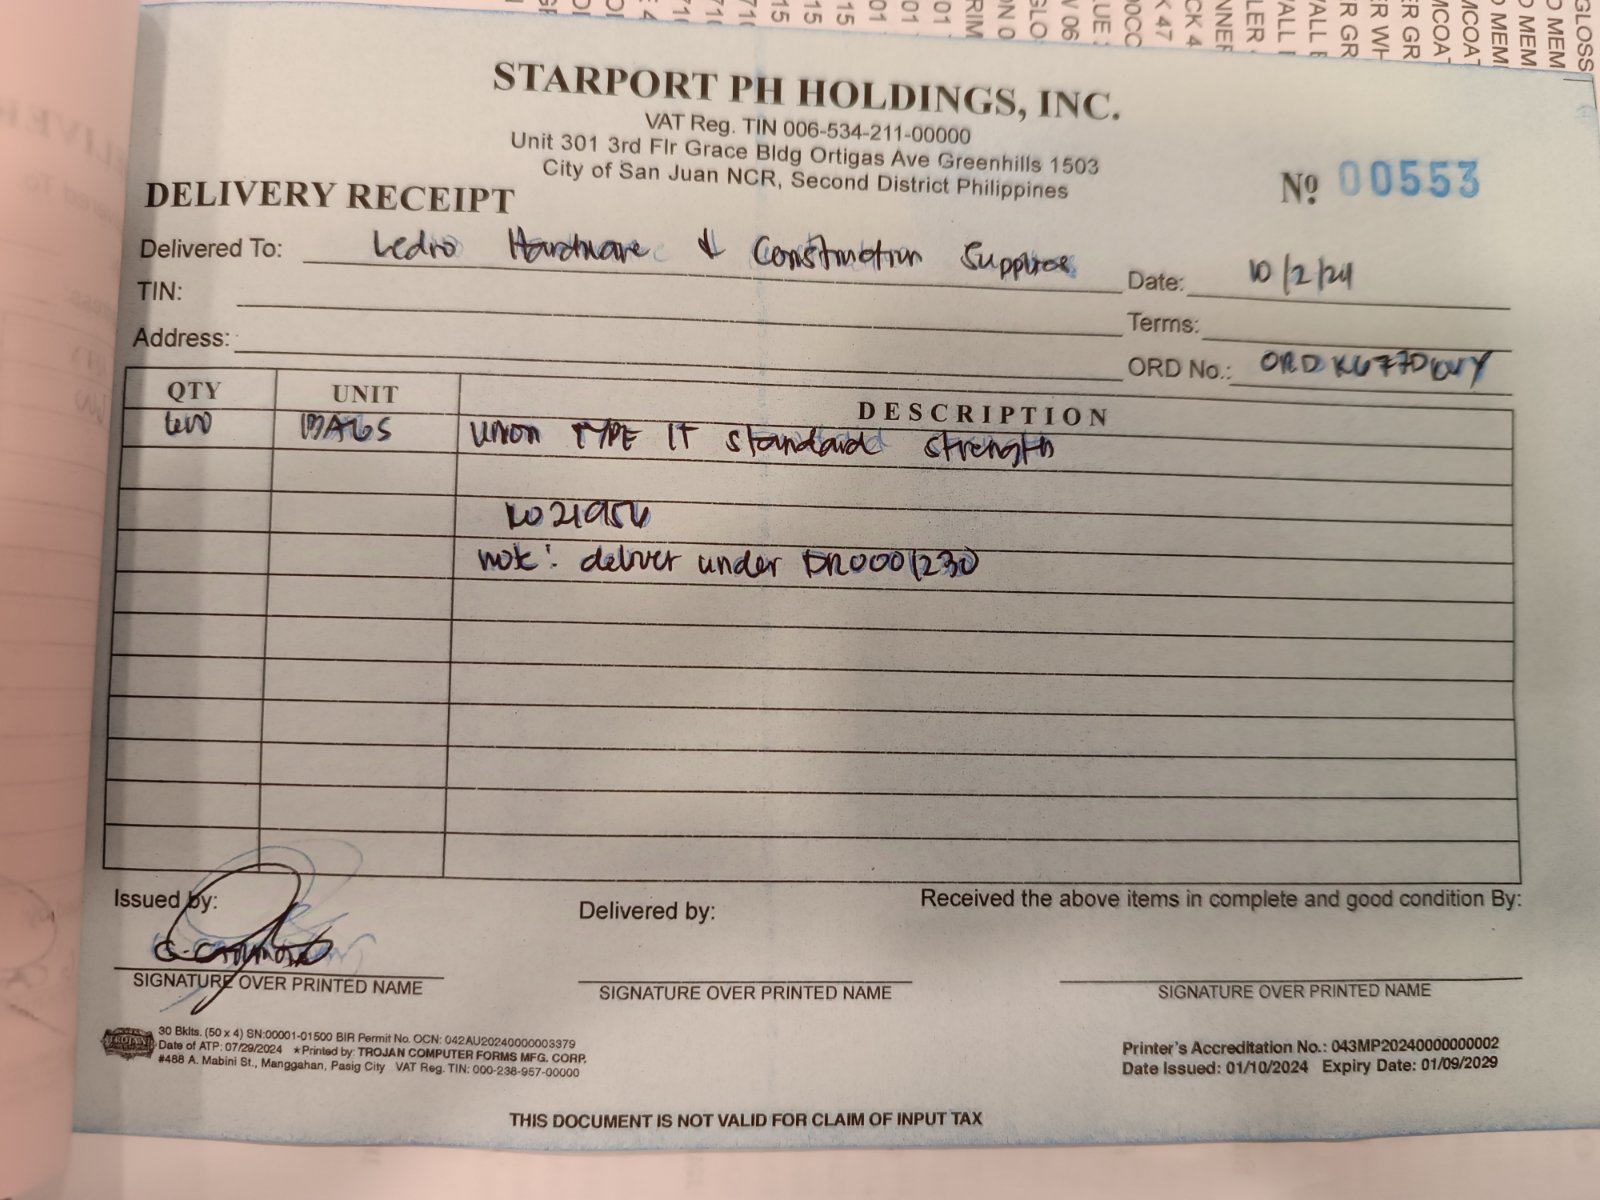 STARPORT PH HOLDINGS, INC.
VAT Reg. TIN 006-534-211-00000
Unit 301 3rd Flr Grace Bldg Ortigas Ave Greenhills 1503
City of San Juan NCR, Second District Philippines
DELIVERY RECEIPT
Nº 00553
Delivered To: Ledro Hardware & Construction Supplies
Date: 10/2/24
TIN:
Terms:
Address:
ORD No.:
QTY UNIT DESCRIPTION
600 BAGS Union TYPE IT standard strength
note: deliver under DR0001230
Issued by:
Delivered by:
Received the above items in complete and good condition By:
SIGNATURE OVER PRINTED NAME
SIGNATURE OVER PRINTED NAME
SIGNATURE OVER PRINTED NAME
30 Bklts. (50 x 4) SN:00001-01500 BIR Permit No. OCN: 042AU20240000003379
Date of ATP: 07/29/2024 ★Printed by: TROJAN COMPUTER FORMS MFG. CORP.
#488 A. Mabini St., Manggahan, Pasig City VAT Reg. TIN: 000-238-957-00000
Printer's Accreditation No.: 043MP20240000000002
Date Issued: 01/10/2024 Expiry Date: 01/09/2029
THIS DOCUMENT IS NOT VALID FOR CLAIM OF INPUT TAX